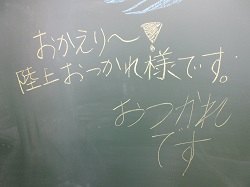 おかえり～!
陸上おつかれ様です。
おつかれ
です